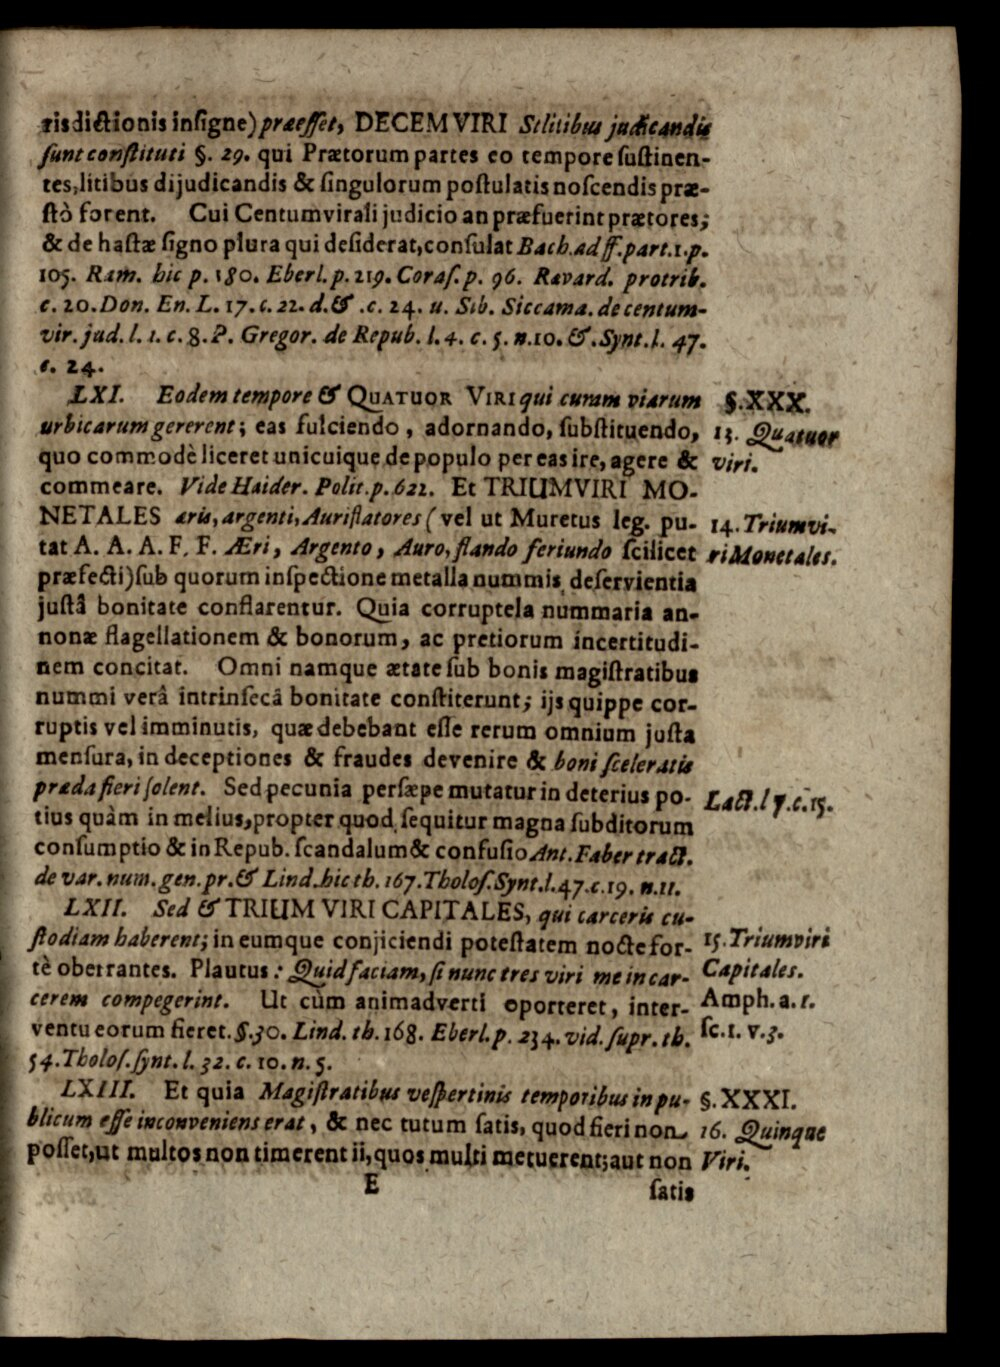 risdictionis inſigne) præeſſet, DECEMVIRI Stlitibus judicandis
ſunt conſtituti §. 29. qui Prætorum partes eo tempore ſuſtinen-
tes, litibus dijudicandis & ſingulorum poſtulatis noſcendis præ-
ſtò forent. Cui Centumvirali judicio an præfuerint prætores;
& de haſtæ ſigno plura qui deſiderat, conſulat Bach. ad ff. part. 1. p.
105. Ram. hic p. 180. Eberl. p. 219. Coraſ. p. 96. Ravard. protrib.
c. 20. Don. En. L. 17. c. 22. d. & .c. 24. u. Sib. Siccama. de centum-
vir. jud. l. 1. c. 8. P. Gregor. de Repub. l. 4. c. 5. n. 10. &. Synt. l. 47.
c. 24.
LXI. Eodem tempore & QUATUOR VIRI qui curam viarum
urbicarum gererent; eas fulciendo, adornando, ſubſtituendo,
quo commodè liceret unicuique de populo per eas ire, agere &
commeare. Vide Haider. Polit. p. 621. Et TRIUMVIRI MO-
NETALES æris, argenti, Auriflatores (vel ut Muretus leg. pu-
tat A. A. A. F. F. Æri, Argento, Auro, flando feriundo ſcilicet
præfecti) ſub quorum inſpectione metalla nummis deſervientia
juſtâ bonitate conflarentur. Quia corruptela nummaria an-
nonæ flagellationem & bonorum, ac pretiorum incertitudi-
nem concitat. Omni namque ætate ſub bonis magiſtratibus
nummi verâ intrinſecâ bonitate conſtiterunt; ijs quippe cor-
ruptis vel imminutis, quæ debebant eſſe rerum omnium juſta
menſura, in deceptiones & fraudes devenire & boni ſceleratis
præda fieri ſolent. Sed pecunia perſæpe mutatur in deterius po-
tius quàm in melius, propter quod ſequitur magna ſubditorum
conſumptio & in Repub. ſcandalum & confuſio Ant. Faber tract.
de var. num. gen. pr. & Lind. hic th. 167. Tholoſ. Synt. l. 47. c. 19. n. 11.
LXII. Sed & TRIUM VIRI CAPITALES, qui carceris cu-
ſtodiam haberent; in eumque conjiciendi poteſtatem nocte for-
tè oberrantes. Plautus: Quid faciam, ſi nunc tres viri me in car-
cerem compegerint. Ut cùm animadverti oporteret, inter-
ventu eorum fieret. §. 30. Lind. th. 168. Eberl. p. 234. vid. ſupr. th.
54. Tholoſ. ſynt. l. 32. c. 10. n. 5.
LXIII. Et quia Magiſtratibus veſpertinis temporibus in pu-
blicum eſſe inconveniens erat, & nec tutum ſatis, quod fieri non
poſſet, ut multos non timerent ii, quos multi metuerent; aut non
E
ſatis
§. XXX.
13. Quatuor
viri.
14. Triumvi-
ri Monetales.
Lact. l 7. c. 15.
15. Triumviri
Capitales.
Amph. a. 1.
ſc. 1. v. 3.
§. XXXI.
16. Quinque
Viri.